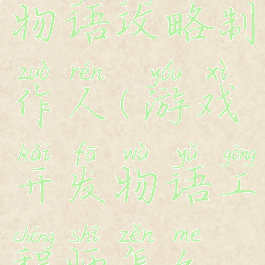 物语攻略制
zuò rén yóu xì
作人(游戏
kāi fā wù yǔ gōng
开发物语工
chéng shī zěn me
程师怎么